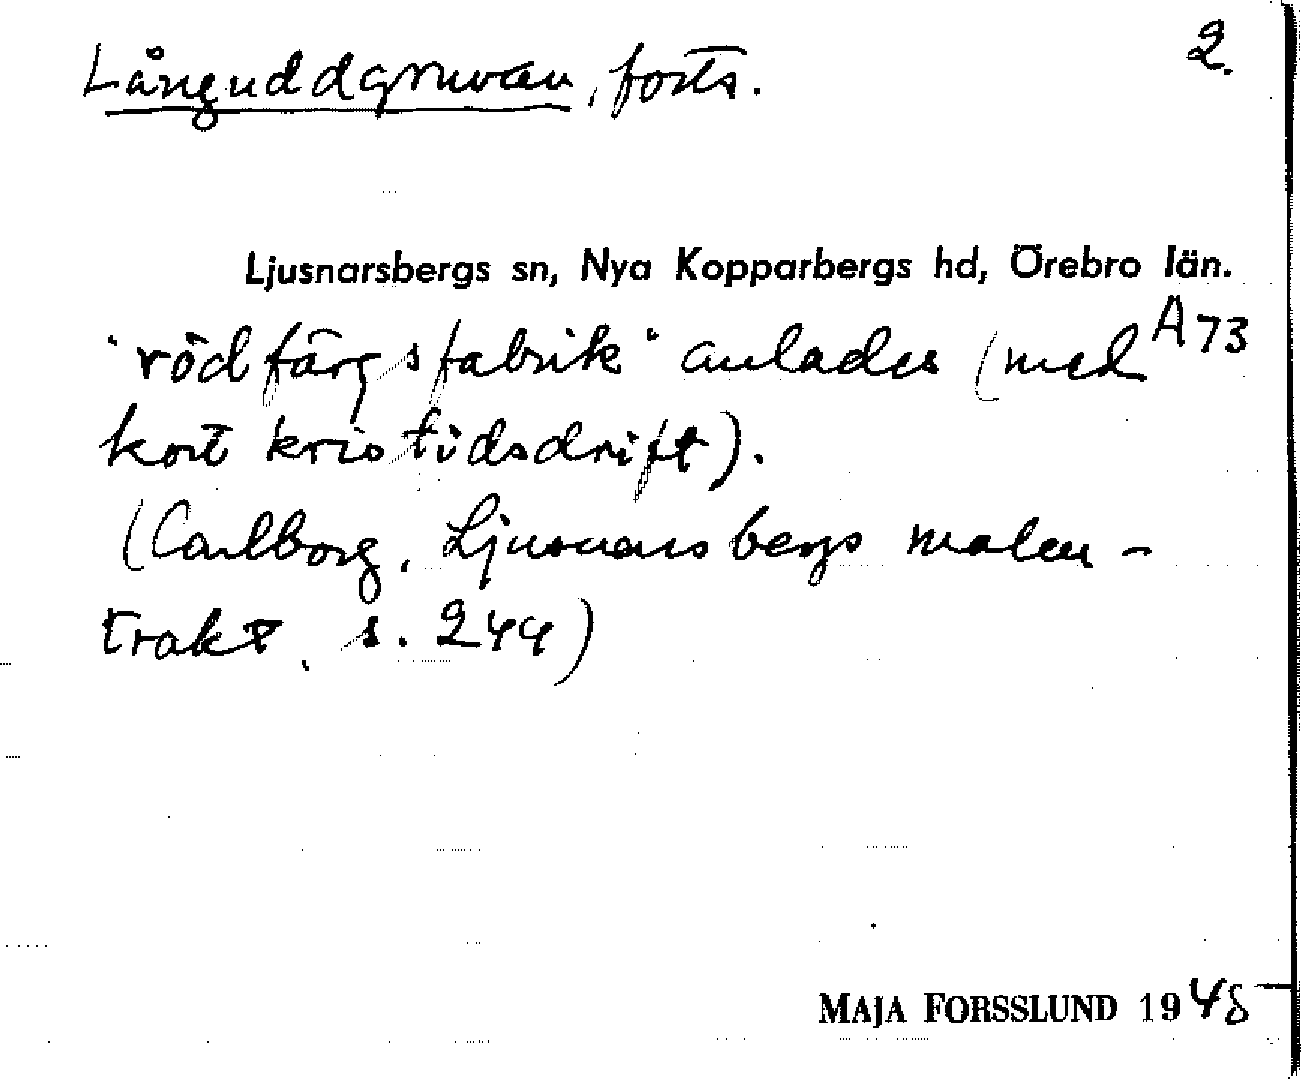 Långuddgruvan, forts.
2.
Ljusnarsbergs sn, Nya Kopparbergs hd, Örebro län.
A73
"rödfärgsfabrik" anlades (med
kort kristidsdrift).
(Carlborg, Ljusnarsbergs malm-
trakt, s. 244)
MAJA FORSSLUND 1945